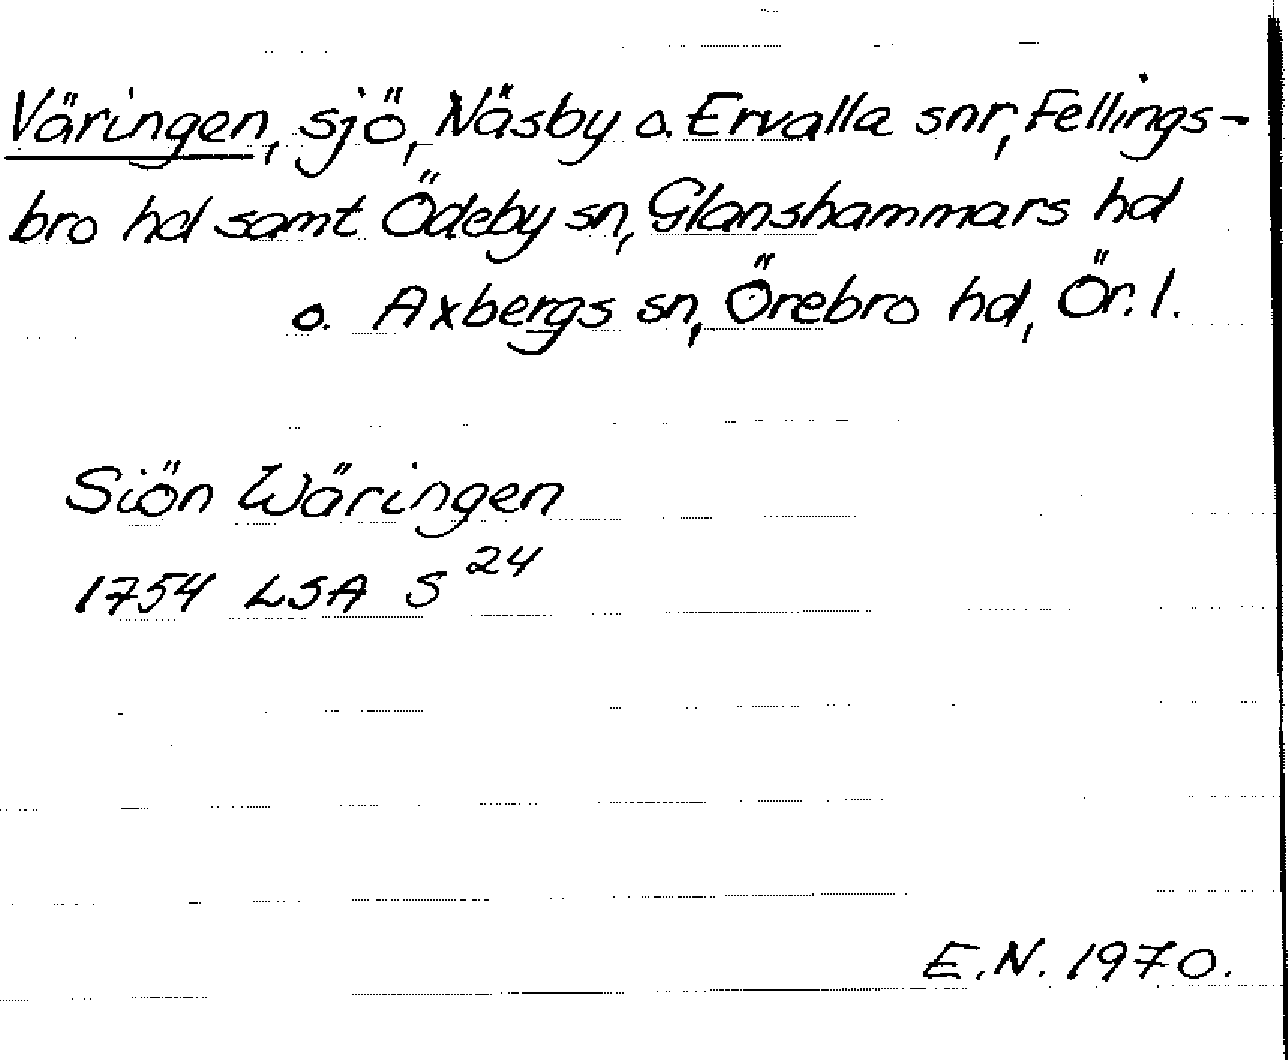 Väringen, sjö, Näsby o. Ervalla snr, Fellings-
bro hd samt Ödeby sn, Glanshammars hd
o. Axbergs sn, Örebro hd, Ör. l.
Siön Wäringen
1754 LSA S 24
E.N. 1970.